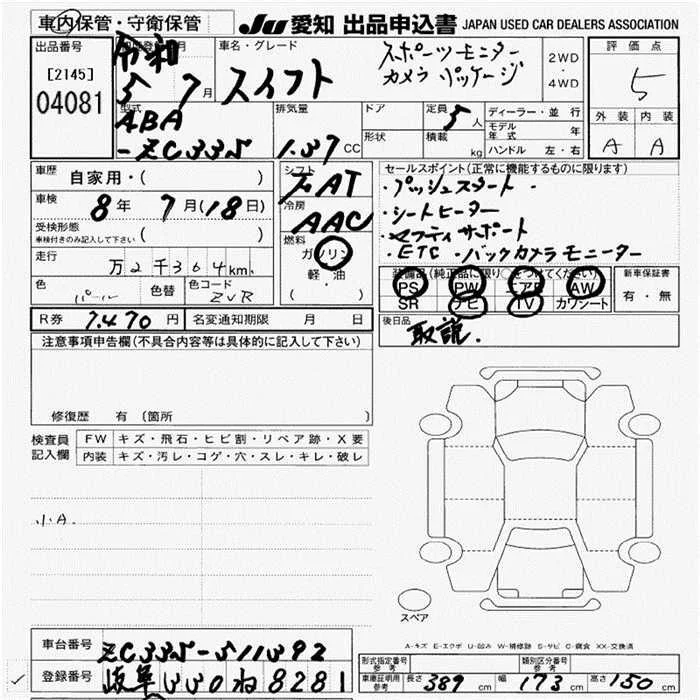 車内保管・守衛保管
JU 愛知 出品申込書 JAPAN USED CAR DEALERS ASSOCIATION
出品番号
[2145]
04081
令和
5 7月
車名・グレード
スイフト
スポーツモニター
カメラパッケージ
2WD
・
4WD
評価点
5
外装 内装
A A
型式
ABA
-ZC33S
排気量
1.37 CC
ドア
形状
定員 5 人
積載 kg
ディーラー・並行
モデル年式 年
ハンドル 左・右
車歴
自家用・( )
車検
8年 7月(18日)
受検形態
車検付きのみ記入して下さい
( )
走行
万2千364km
色
パール
色替
色コード
ZVR
シフト
FAT
冷房
AAC
燃料
ガソリン
軽・油
( )
セールスポイント(正常に機能するものに限ります)
・プッシュスタート・
・シートヒーター
・セーフティサポート
・ETC・バックカメラモニター
装備品(純正品に限り○をつけてください)
PS PW エアB AW
SR ナビ TV カワシート
新車保証書
有・無
R券 7,470円 名変通知期限 月 日
後日品
取説.
注意事項申告欄(不具合内容等は具体的に記入して下さい)
修復歴 有 〔箇所
検査員
記入欄
FW キズ・飛石・ヒビ割・リペア跡・X要
内装 キズ・汚レ・コゲ・穴・スレ・キレ・破レ
小A.
スペア
A-キズ E-エクボ U-凹み W-補修跡 S-サビ C-腐食 XX-交換済
車台番号 ZC33S-511392
登録番号 岐阜 330 ね 8281
型式指定番号
参考
類別区分番号
参考
車庫証明用
参考
長さ 389 cm 幅 173 cm 高さ 150 cm